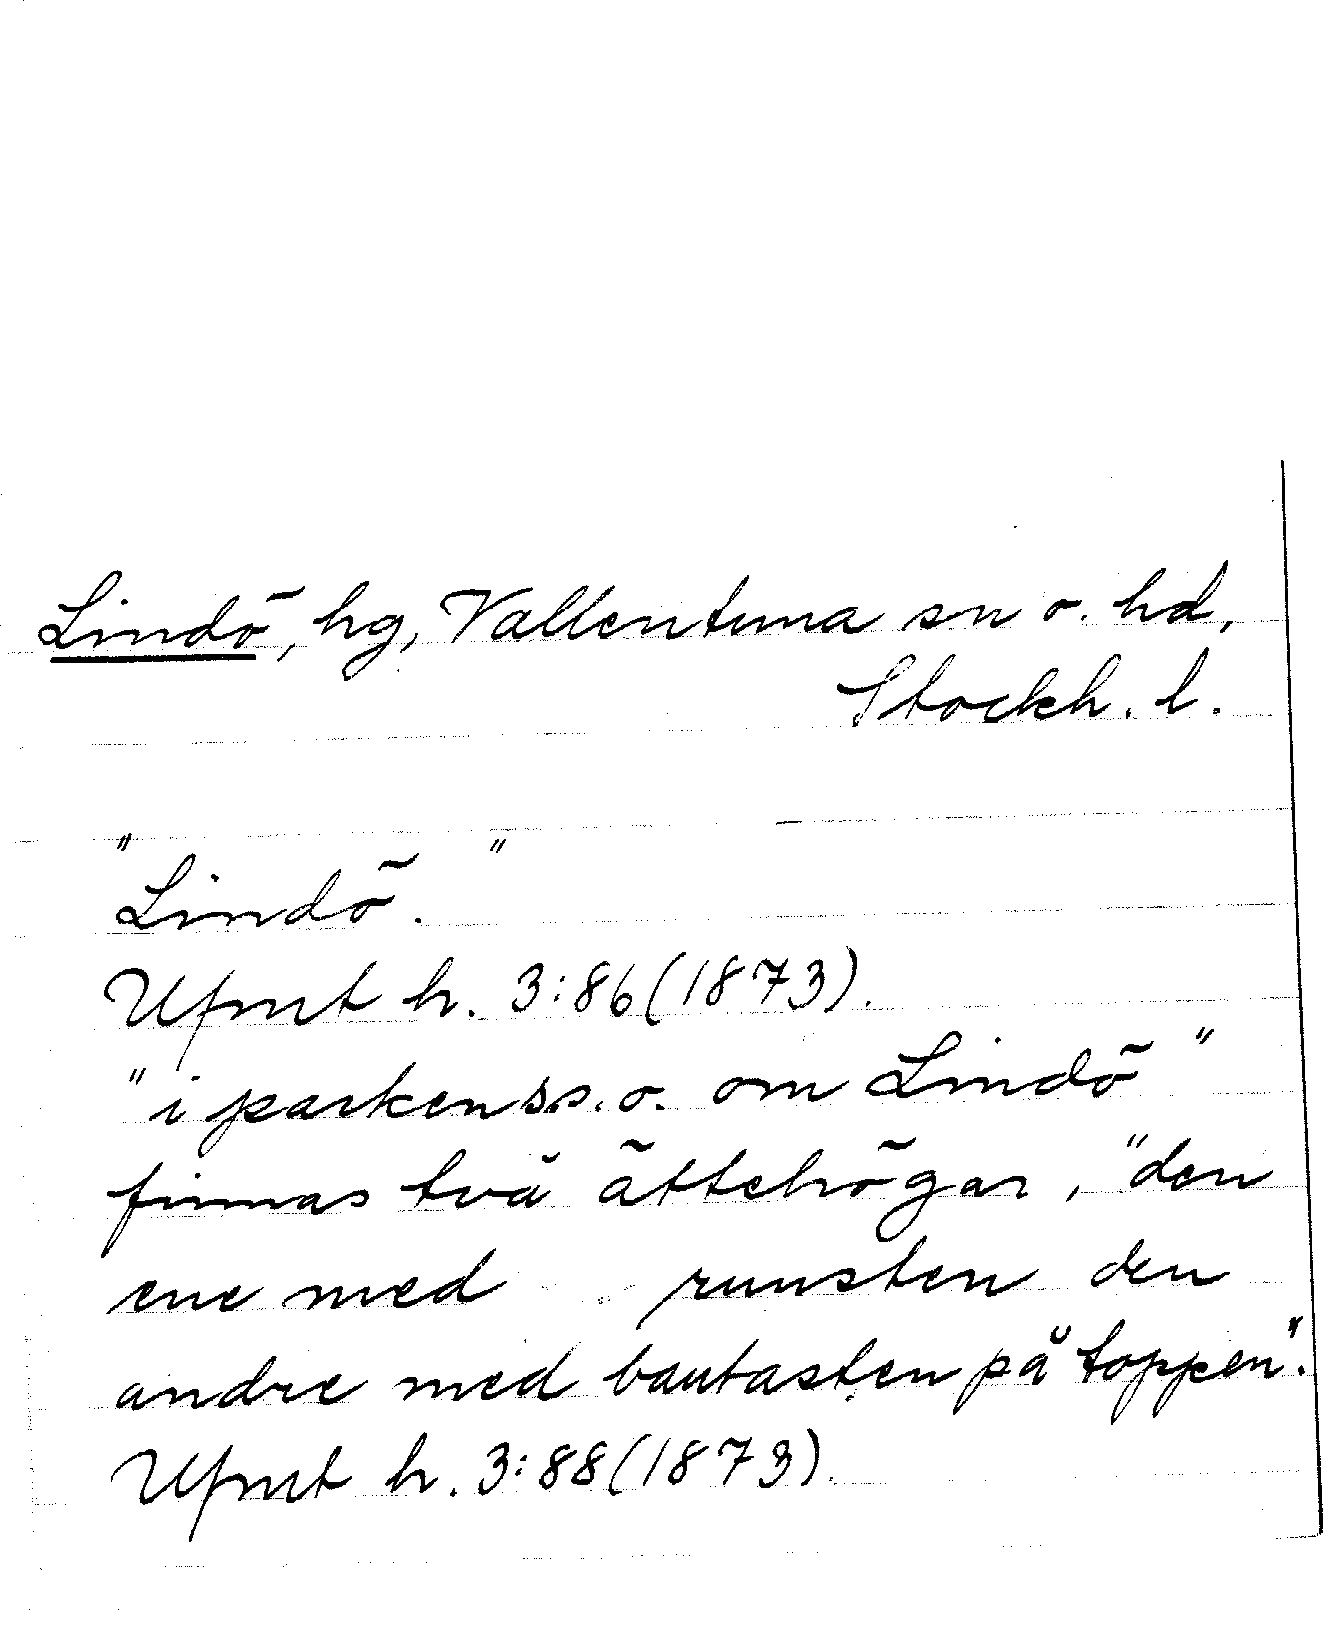 Lindö, hg, Vallentuna sn o. hd,
Stockh. l.
"Lindö."
Ufmt h. 3:86(1873).
"i parken s.o. om Lindö"
finnas två ättehögar, "den
ene med runsten den
andre med bautasten på toppen".
Ufmt h. 3:88(1873).